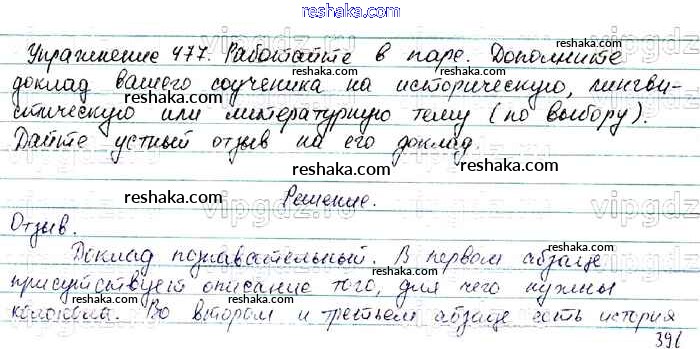 reshaka.com
Упражнение 477. Работайте в паре. Дополните
reshaka.com
доклад вашего соученика на историческую, лингви-
reshaka.com
стическую или литературную тему (по выбору).
reshaka.com
Дайте устный отзыв на его доклад.
reshaka.com
reshaka.com
Решение.
Отзыв.
reshaka.com
Доклад познавательный. В первом абзаце
reshaka.com
присутствует описание того, для чего нужны
reshaka.com
колокола. Во втором и третьем абзаце есть история
391
vipgdz.ru